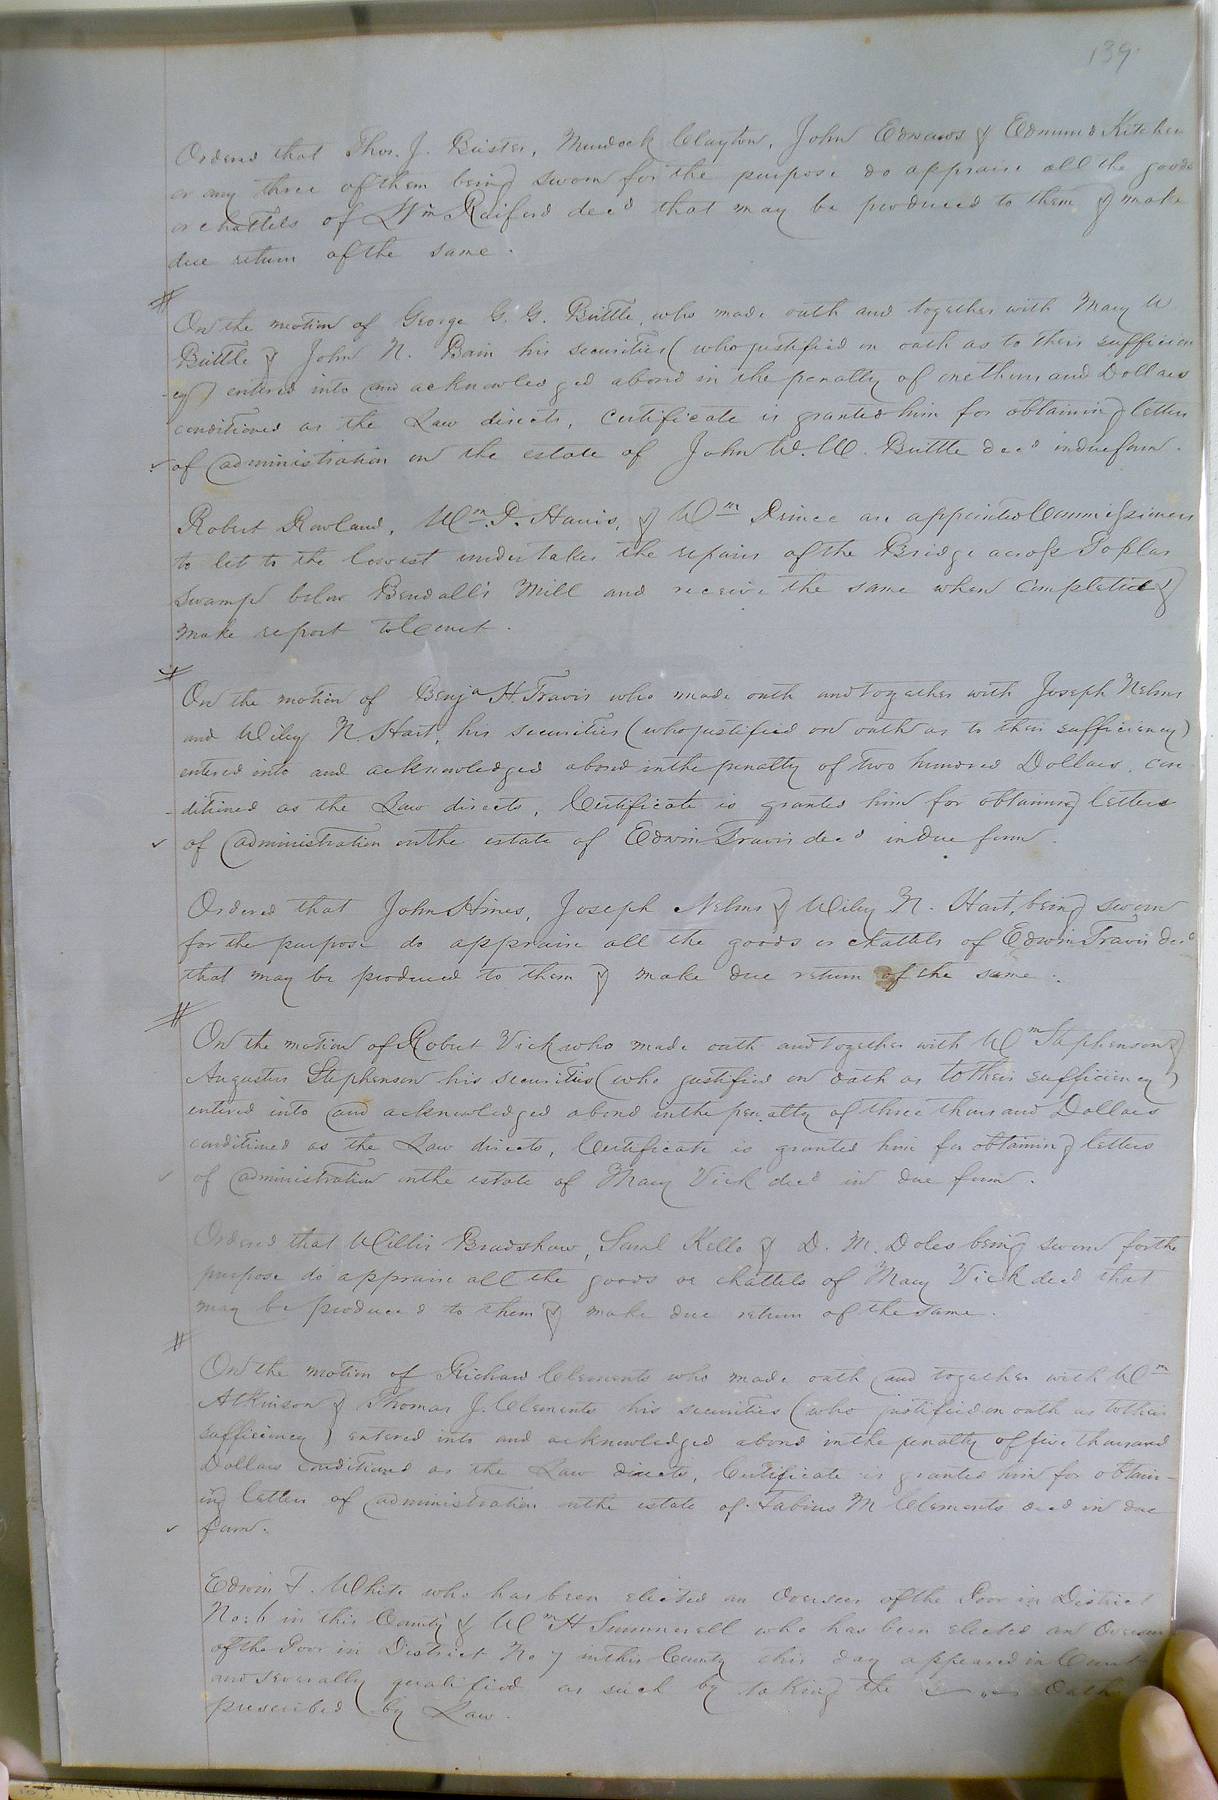 139
Ordered that Thos. J. Bristen, Murdock Clayton, John Edwards & Edmund Kitchen
or any three of them being sworn for the purpose do appraise all the goods
or chattels of Wm Raiford decd that may be produced to them & make
due return of the same.
On the motion of George G. G. Brittle, who made oath and together with Mary W
Brittle & John N. Bain his securities (who justified on oath as to their sufficien
-cy) entered into and acknowledged a bond in the penalty of one thousand Dollars
conditioned as the Law directs, Certificate is granted him for obtaining letters
of administration on the estate of John W. W. Brittle decd in due form.
Robert Rowland, Wm. P. Harris, & Wm Prince are appointed Commissioners
to let to the lowest undertaker the repairs of the Bridge across Poplar
Swamp below Bendall's Mill and receive the same when completed &
make report to Court.
On the motion of Benja H. Travis who made oath and together with Joseph Nelms
and Wiley N. Hart, his securities (who justified on oath as to their sufficiency)
entered into and acknowledged a bond in the penalty of two hundred Dollars, con
-ditioned as the Law directs, Certificate is granted him for obtaining letters
of administration on the estate of Edwin Travis decd in due form.
Ordered that John Hines, Joseph Nelms & Wiley N. Hart, being sworn
for the purpose do appraise all the goods or chattels of Edwin Travis decd
that may be produced to them & make due return of the same.
On the motion of Robert Vick who made oath and together with Wm Stephenson &
Augustus Stephenson his securities (who justified on oath as to their sufficiency)
entered into and acknowledged a bond in the penalty of three thousand Dollars
conditioned as the Law directs, Certificate is granted him for obtaining letters
of administration on the estate of Mary Vick decd in due form.
Ordered that Willis Bradshaw, Saml Kello & D. M. Doles being sworn for the
purpose do appraise all the goods or chattels of Mary Vick decd that
may be produced to them & make due return of the same.
On the motion of Richard Clements who made oath and together with Wm
Atkinson & Thomas J. Clements his securities (who justified on oath as to their
sufficiency) entered into and acknowledged a bond in the penalty of five thousand
Dollars conditioned as the Law directs, Certificate is granted him for obtain-
ing letters of administration on the estate of Fabius M Clements decd in due
form.
Edwin T. White who has been elected an Overseer of the Poor in District
No: 6 in this County & Wm H Summerell who has been elected an Overseer
of the Poor in District No 7 in this County this day appeared in Court
and severally qualified as such by taking the Oath
prescribed by Law.